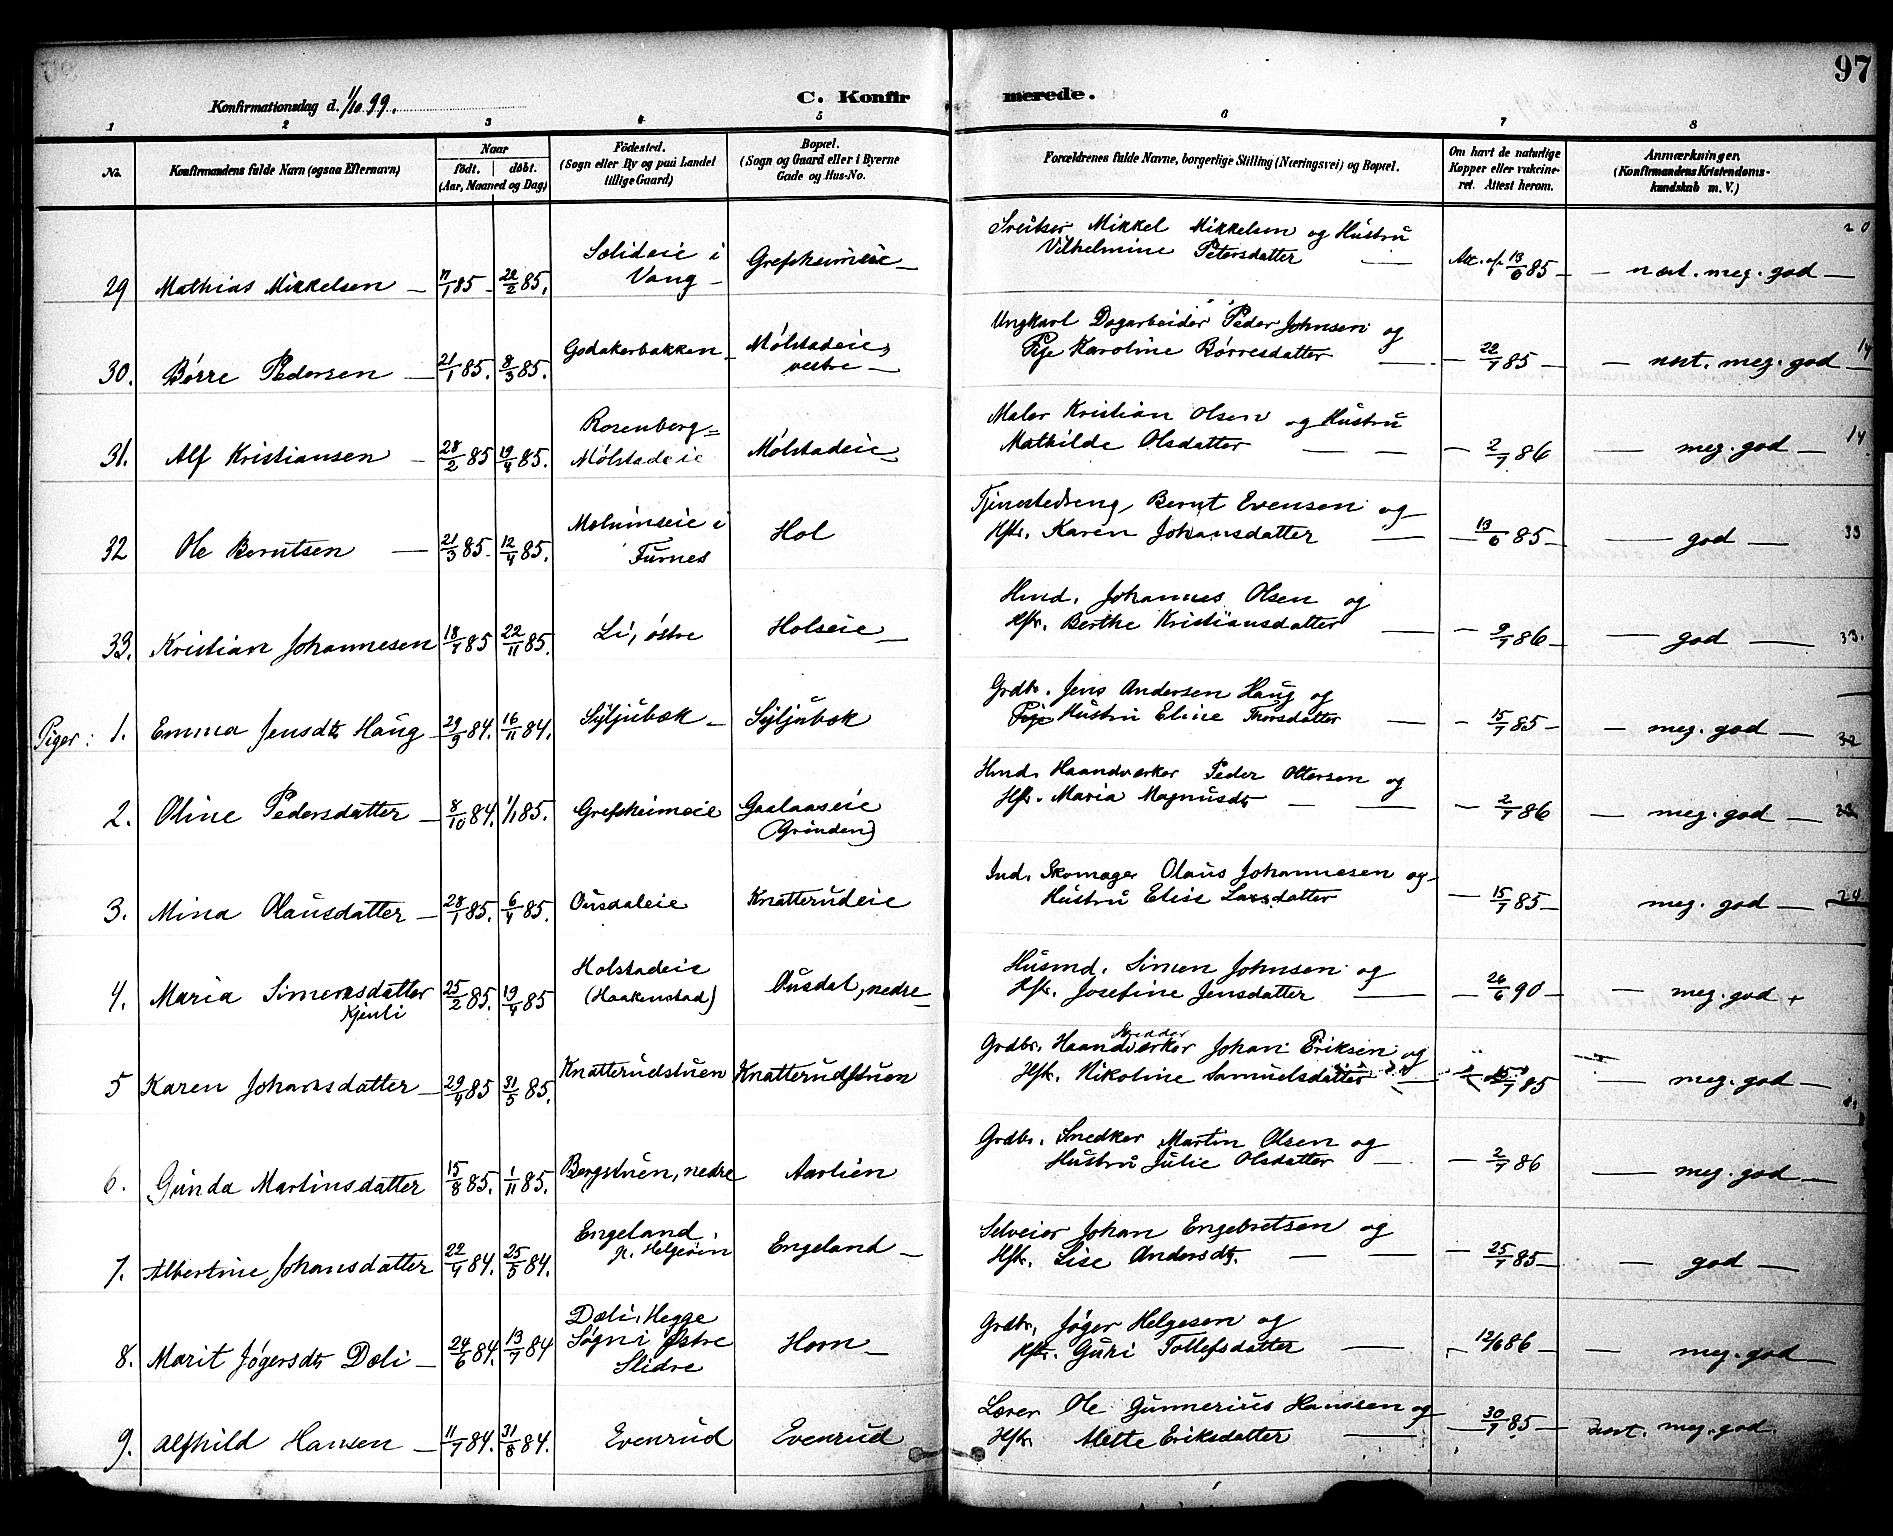 97
Konfirmationsdag d. 1/10 99.
C. Konfirmerede.
1 2 3 4 5 6 7 8
No. Konfirmandens fulde Navn (ogsaa Efternavn) Naar født. døbt. (Aar, Maaned og Dag) Fødested. (Sogn eller By og paa Landet tillige Gaard) Bopæl. (Sogn og Gaard eller i Byerne Gade og Hus-No. Forældrenes fulde Navne, borgerlige Stilling (Næringsvei) og Bopæl. Om havt de naturlige Kopper eller vakcineret. Attest herom. Anmærkninger. (Konfirmandens Kristendomskundskab m. V.)
29 Mathias Mikkelsen 11/1 85 22/2 85. Sælideie i Vang Grefsheimeie Sveitser Mikkel Mikkelsen og Hustru Vilhelmine Petersdatter Att. af 13/6 85 næst. meg. god 20
30. Børre Pedersen 21/1 85. 8/3 85. Godakerbakken Mølstadeie, vestre Ungkarl Dagarbeider Peder Johnsen og Pige Karoline Børresdatter 22/7 85 næst. meg. god 14
31. Alf Kristiansen 28/2 85 19/4 85. Rosenberg Mølstadeie Mølstadeie Maler Kristian Olsen og Hustru Mathilde Olsdatter 2/7 86 meg. god 14
32 Ole Berntsen 21/3 85. 12/4 85. i Furnes Hol Tjenestedreng Bernt Evensen og Hstr. Karen Johansdatter 13/6 85 god 33
33. Kristian Johannesen 18/7 85 22/11 85. Li, østre Holseie Hmd. Johannes Olsen og Hstr. Berthe Kristiansdatter 9/7 86 god 33.
Piger: 1. Emma Jensdtr Haug 29/9 84. 16/11 84. Syljubæk Syljubæk Grdbr. Jens Andersen Haug og Pige Hustru Eline Thorsdatter 15/7 85 meg. god 32
2. Oline Pedersdatter 8/10 84. 1/1 85. Grefsheimeie Gaalaaseie (Grinden) Hmd. Haandværker Peder Ottersen og Hstr. Maria Magnusdtr 2/7 86 meg. god
3. Mina Olausdatter 28/1 85. 6/4 85. Ousdaleie Knatterudeie Ind. Skomager Olaus Johannesen og Hustru Elise Larsdatter 15/7 85 meg. god 24
4. Maria Simensdatter Kjenli 25/2 85. 19/4 85 Holstadeie (Haakenstad) Ousdal, nedre Husmd. Simen Johnsen og Hstr. Josefine Jensdatter 26/6 90 meg. god +
5 Karen Johansdatter 29/4 85 31/5 85. Knatterudstuen Knatterudstuen Grdbr. Haandværker Skrædder Johan Eriksen og Hstr. Nikoline Samuelsdatter 15/7 85 meg. god
6. Gunda Martinsdatter 15/8 85. 1/11 85. Bergstuen, nedre Aarlien Grdbr. Snedker Martin Olsen og Hustru Julie Olsdatter 2/7 86 meg. god
7. Albertine Johansdatter 22/4 84. 25/5 84. Engeland, n. Helgøien Engeland Selveier Johan Engebretsen og Hstr. Lise Andersdtr. 25/7 85 god
8. Marit Jøgersdtr Dæli 24/6 84. 13/7 84 Dæli, Hegge Sogn i Østre Slidre Horn Grdbr. Jøger Helgesen og Hstr. Guri Tollefsdatter 12/6 86 meg. god
9. Alfhild Hansen 11/7 84. 31/8 84. Evenrud Evenrud Lærer Ole Gunnerius Hanssen og Hstr Mette Eriksdatter 30/7 85 næst. meg. god.